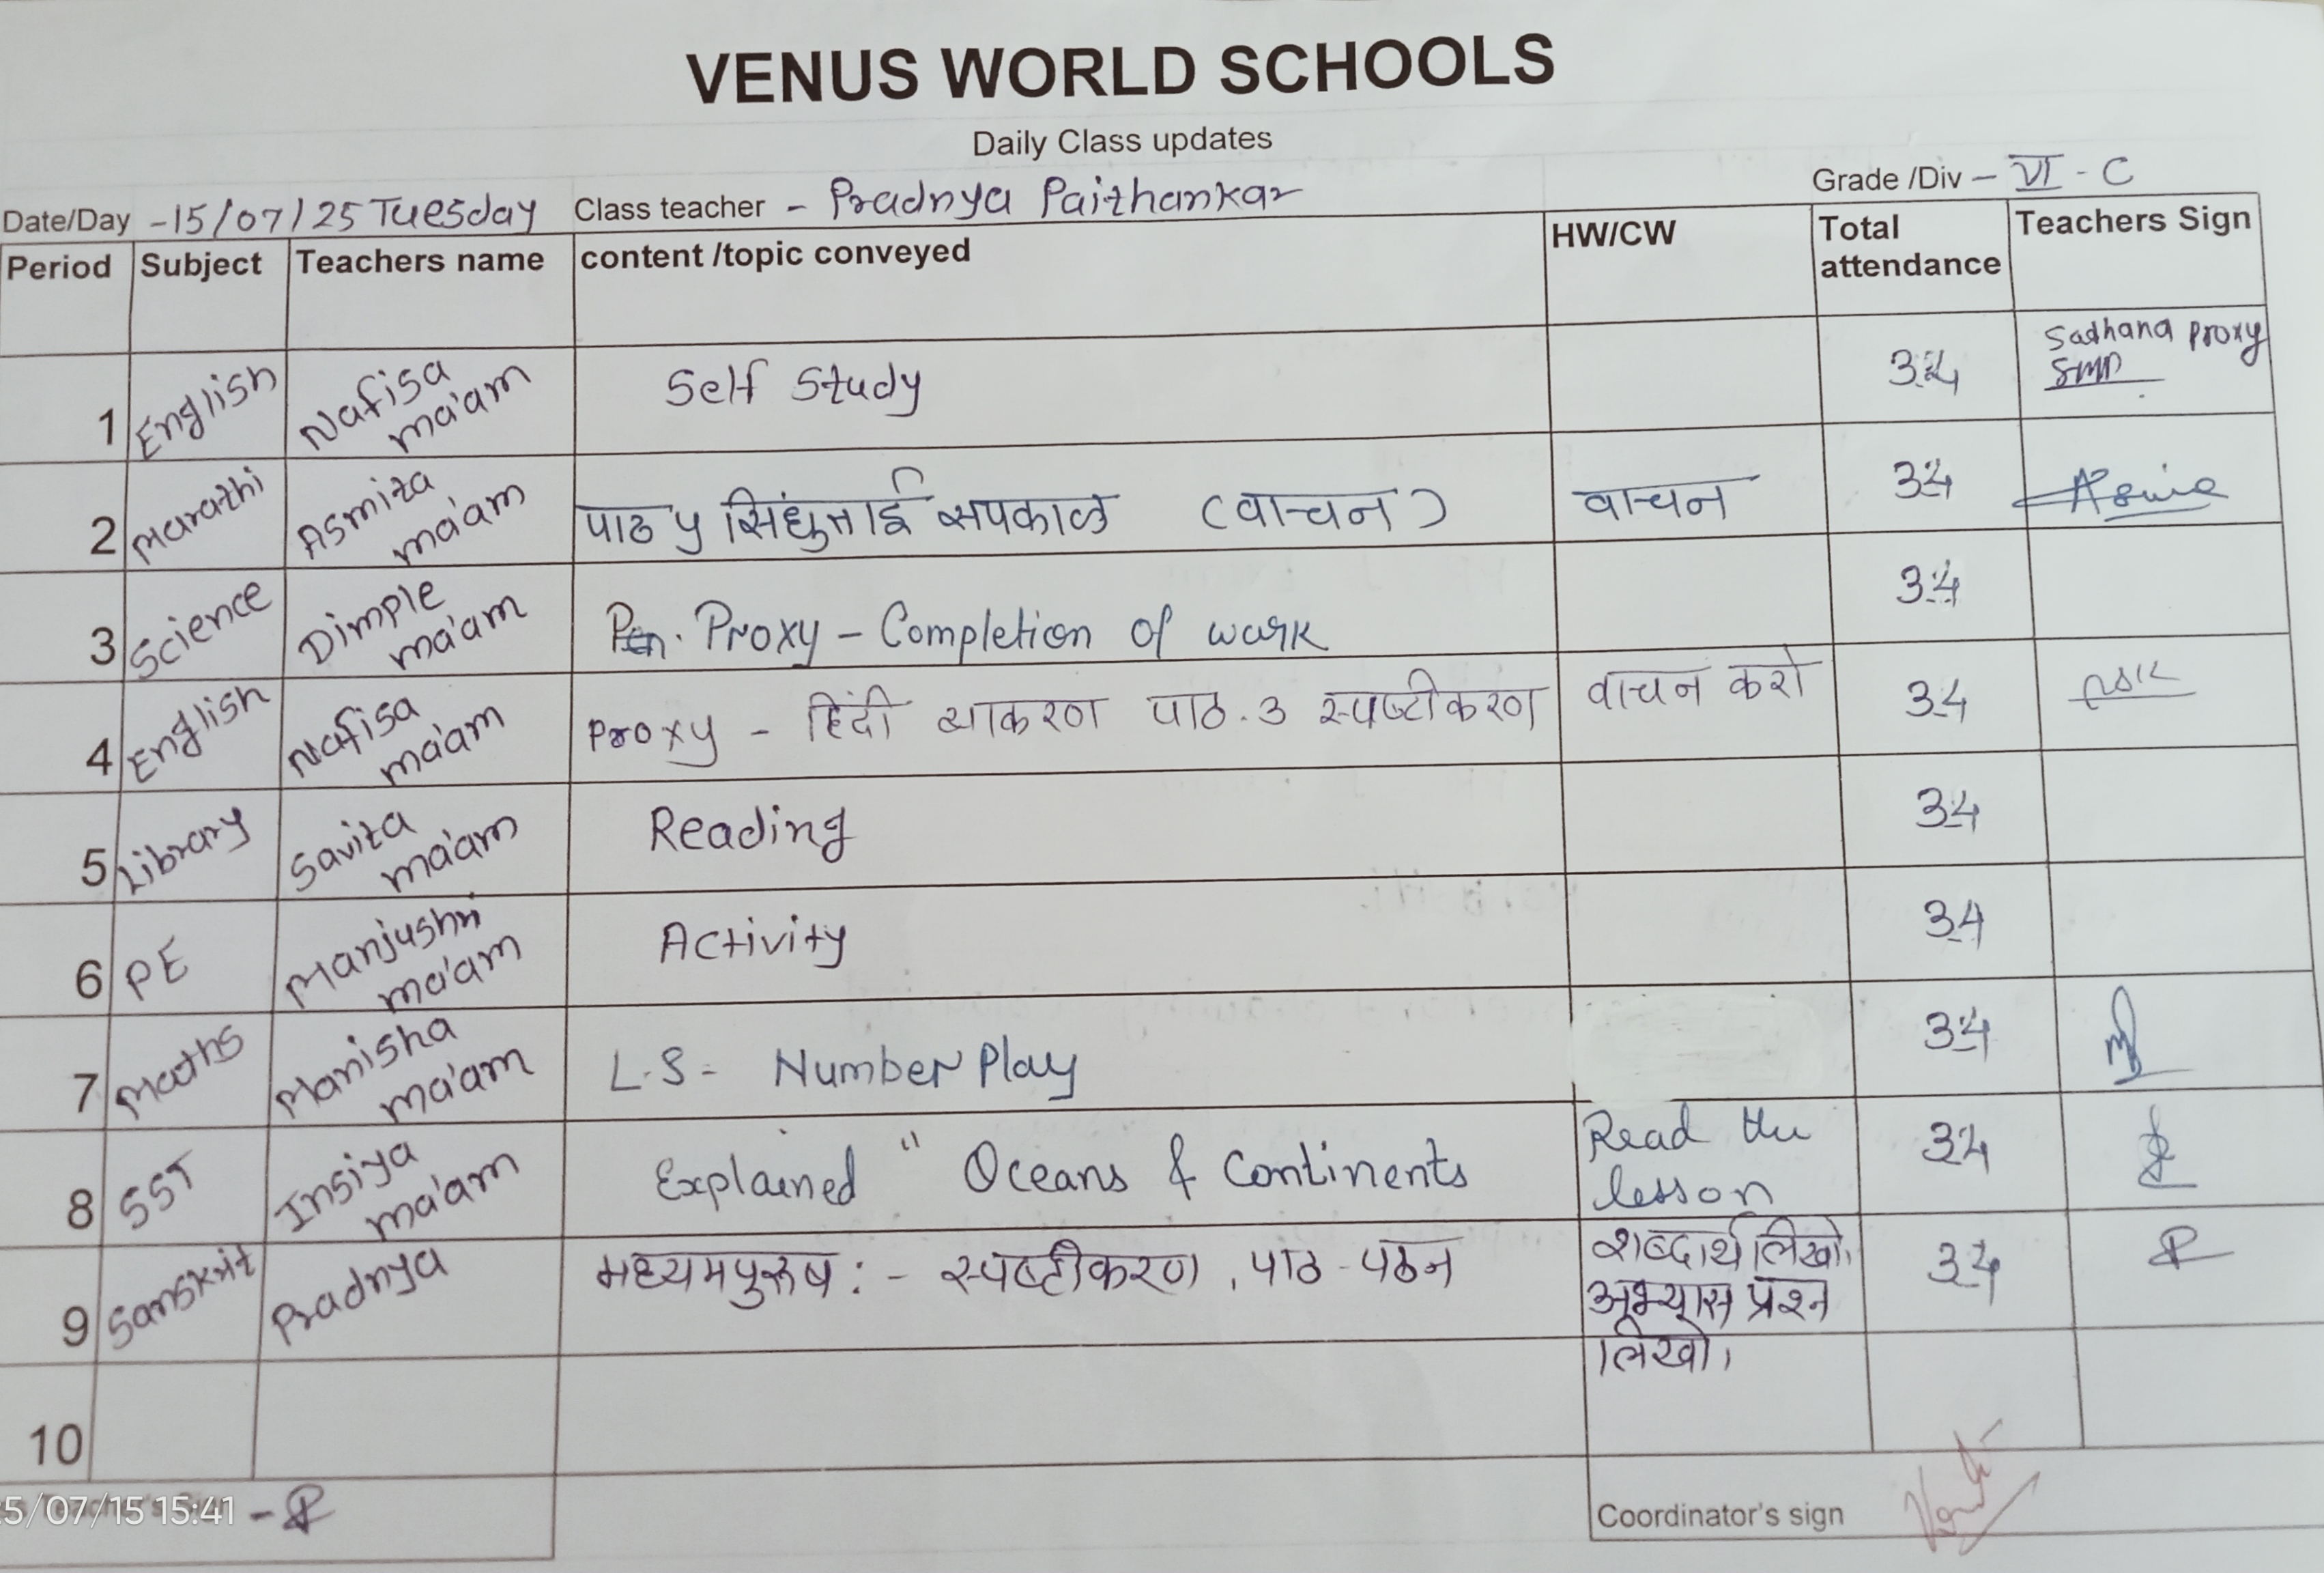 VENUS WORLD SCHOOLS
Daily Class updates
Date/Day - 15/07/25 Tuesday Class teacher - Pradnya Paithankar Grade /Div - VI - C
Period Subject Teachers name content /topic conveyed HW/CW Total attendance Teachers Sign
1 English Nafisa ma'am Self Study 34 Sadhana Proxy
2 Marathi Asmita ma'am पाठ ५ सिंधुताई सपकाळ (वाचन) वाचन 34
3 Science Dimple ma'am Proxy - Completion of work 34
4 English Nafisa ma'am Proxy - हिंदी व्याकरण पाठ. ३ स्पष्टीकरण वाचन करो 34
5 Library Savita ma'am Reading 34
6 PE Manjushri ma'am Activity 34
7 Maths Manisha ma'am L.S - Number Play 34
8 SST Insiya ma'am Explained " Oceans & Continents Read the lesson 34
9 Sanskrit Pradnya मध्यमपुरूष: - स्पष्टीकरण, पाठ - पठन शब्दार्थ लिखो। अभ्यास प्रश्न लिखो। 34
10
5/07/15 15:41
Coordinator's sign